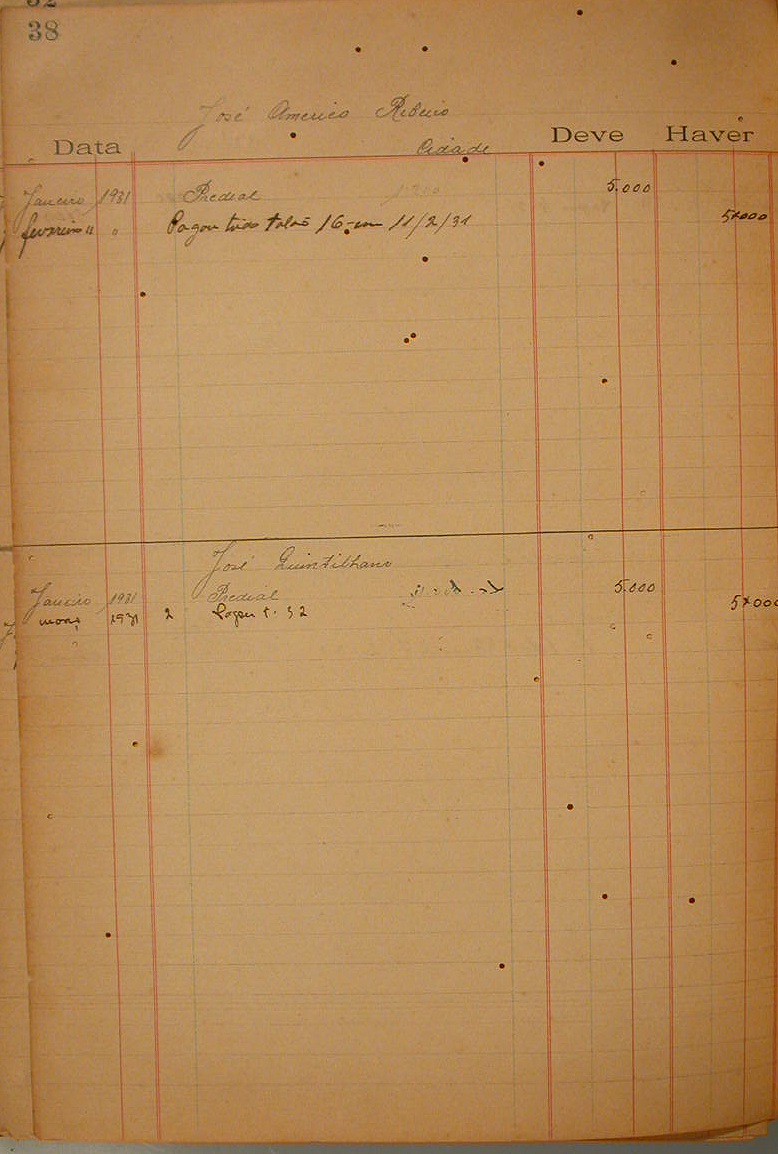 38
José Americo Ribeiro
Data Cidade Deve Haver
Janeiro 1931 Predial 5.000
fevereiro " " Pagou talão 16 em 11/2/31 5$000
José Quintilhano
Janeiro 1931 Predial 5.000
1931 2 Pagou t. 32 5$000